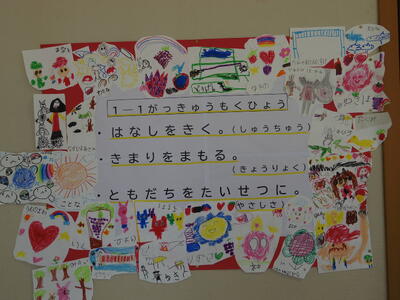 1―1がっきゅうもくひょう
・はなしをきく。(しゅうちゅう)
・きまりをまもる。
(きょうりょく)
・ともだちをたいせつに。
(やさしさ)